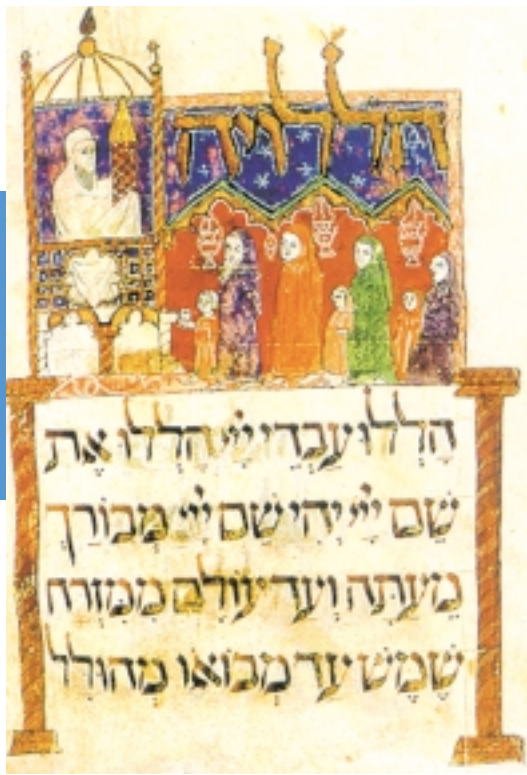 הללויה
הַלְלוּ עַבְדֵי יְיָ הַלְלוּ אֶת
שֵׁם יְיָ יְהִי שֵׁם יְיָ מְבוֹרָךְ
מֵעַתָּה וְעַד עוֹלָם מִמִּזְרַח
שֶׁמֶשׁ עַד מְבוֹאוֹ מְהוּלָל